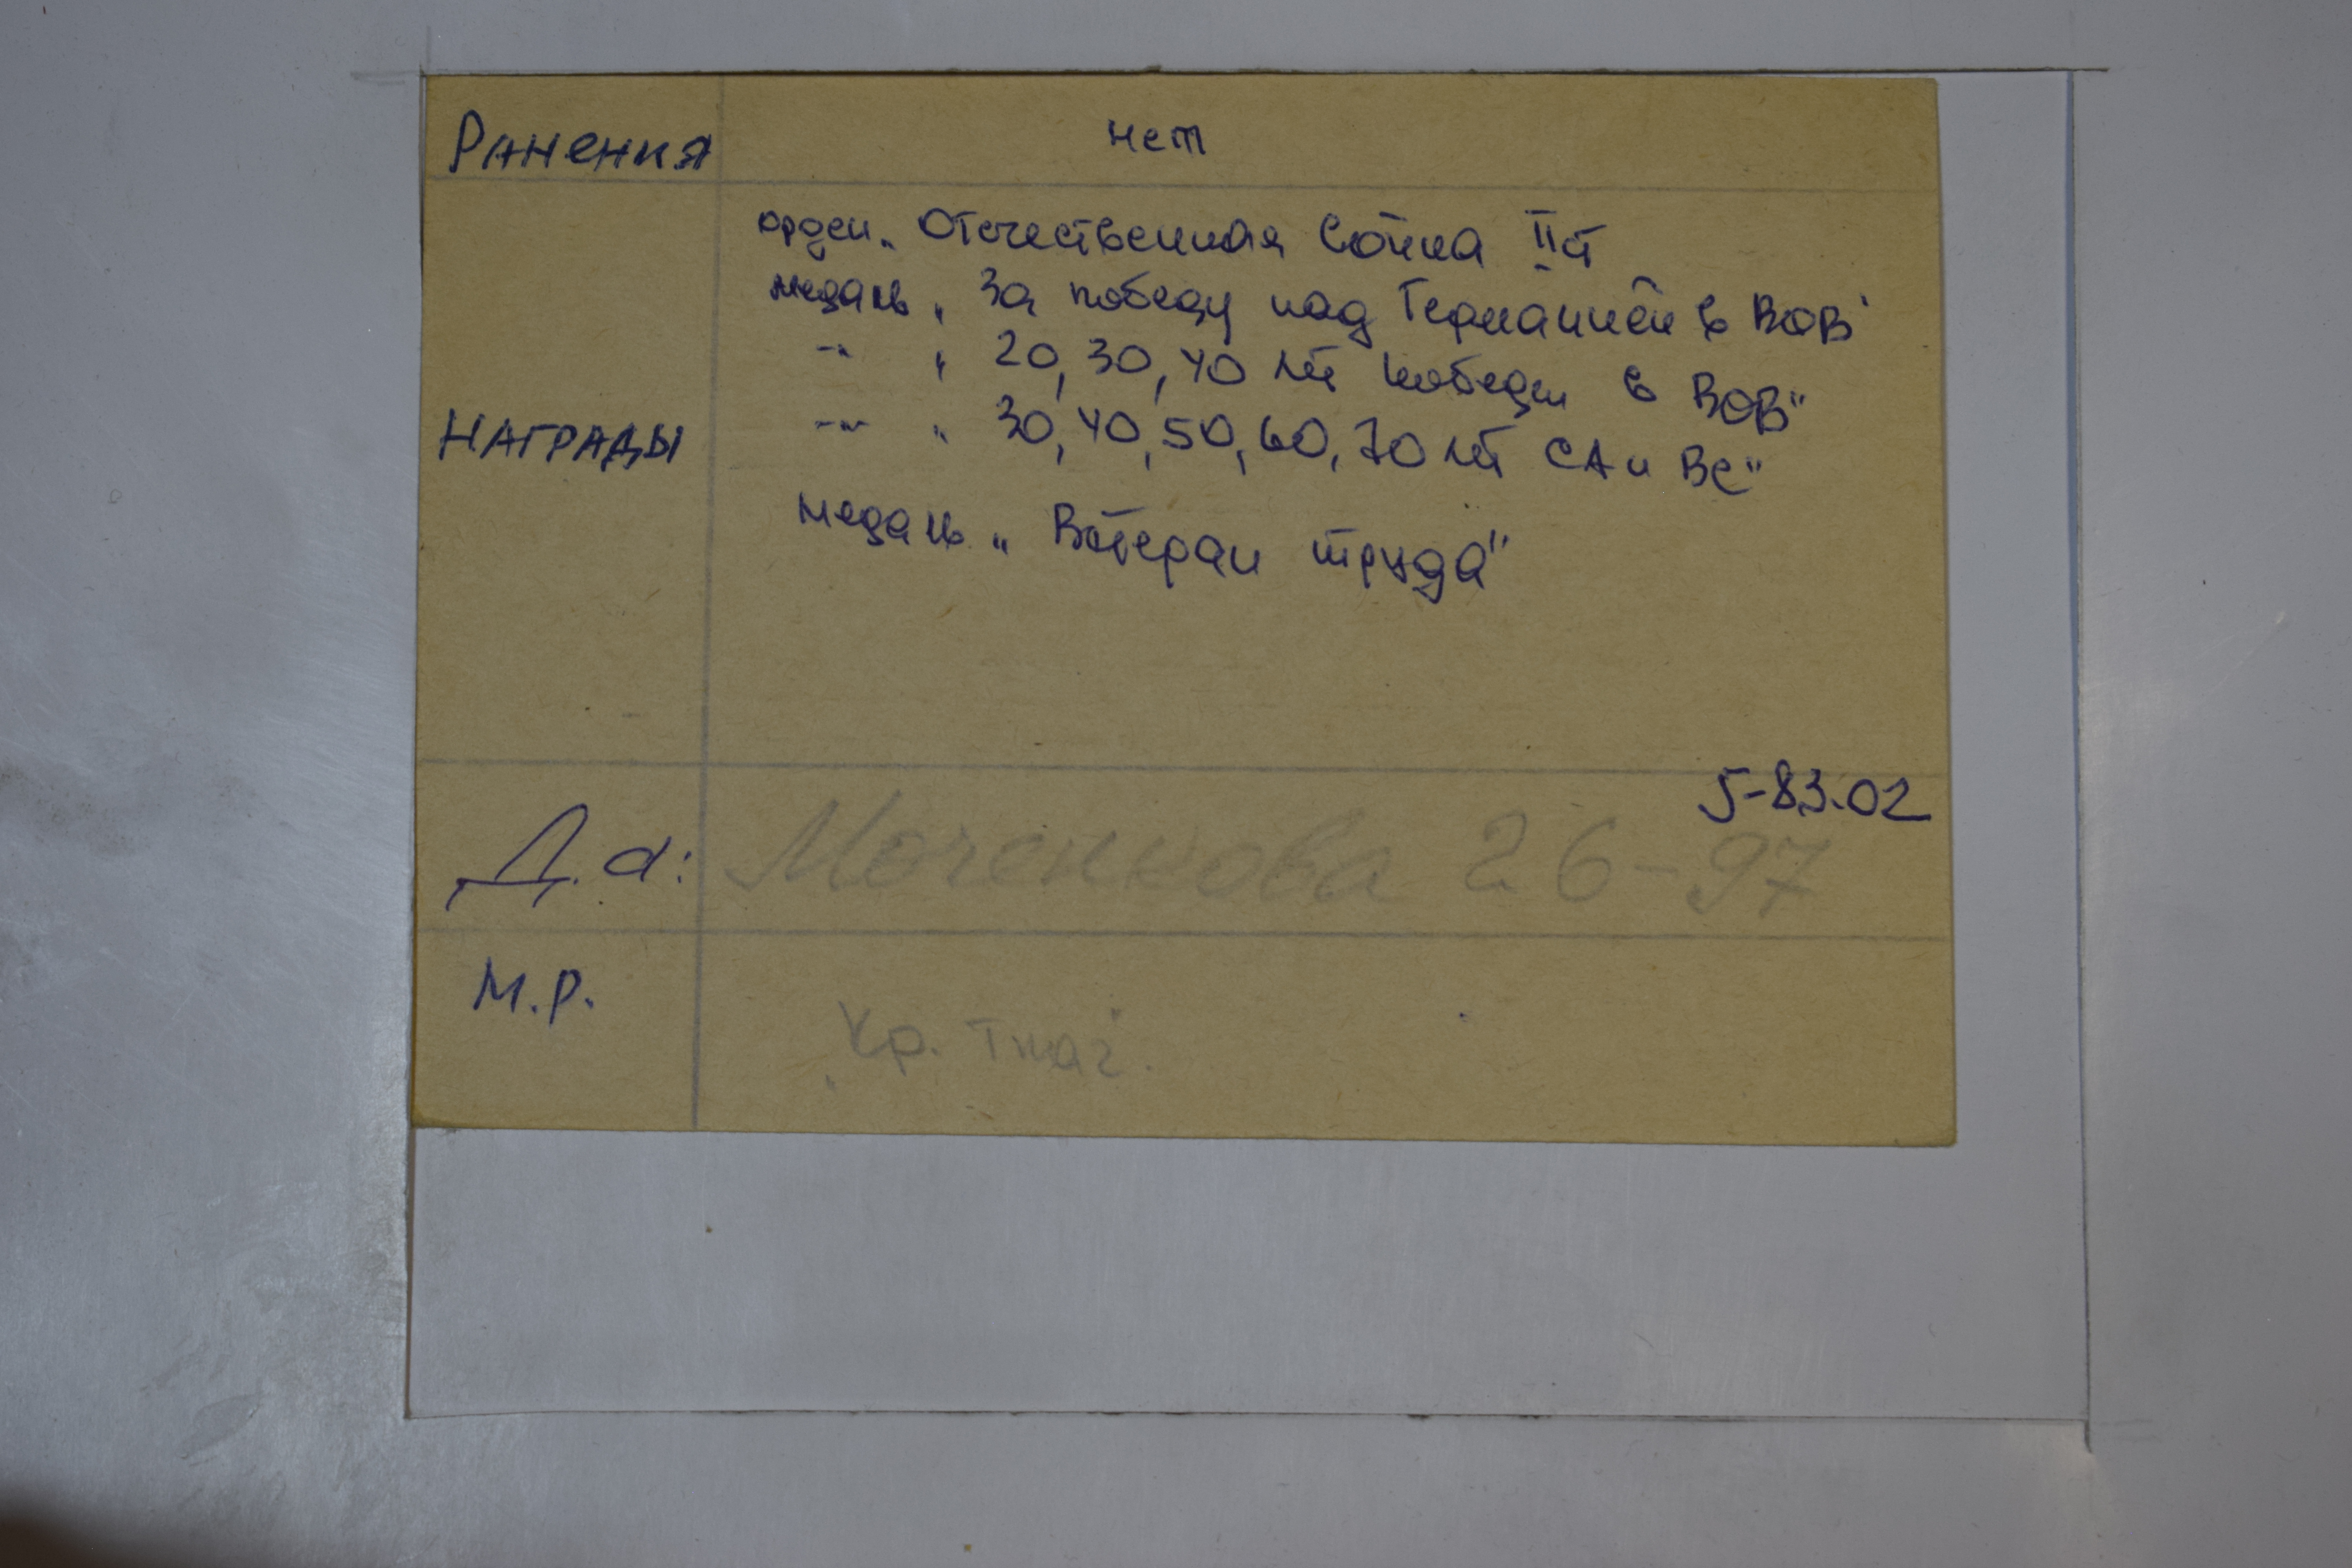 Ранения нет
орден „ Отечественная война II ст
медаль „ За победу над Германией в ВОВ"
-"- „ 20, 30, 40 лет победы в ВОВ"
Награды -"- „ 30, 40, 50, 60, 70 лет СА и ВС"
медаль „ Ветеран труда"
5-83.02
Д.а: Моченкова 26-97
М.Р. „Кр. Ткач"